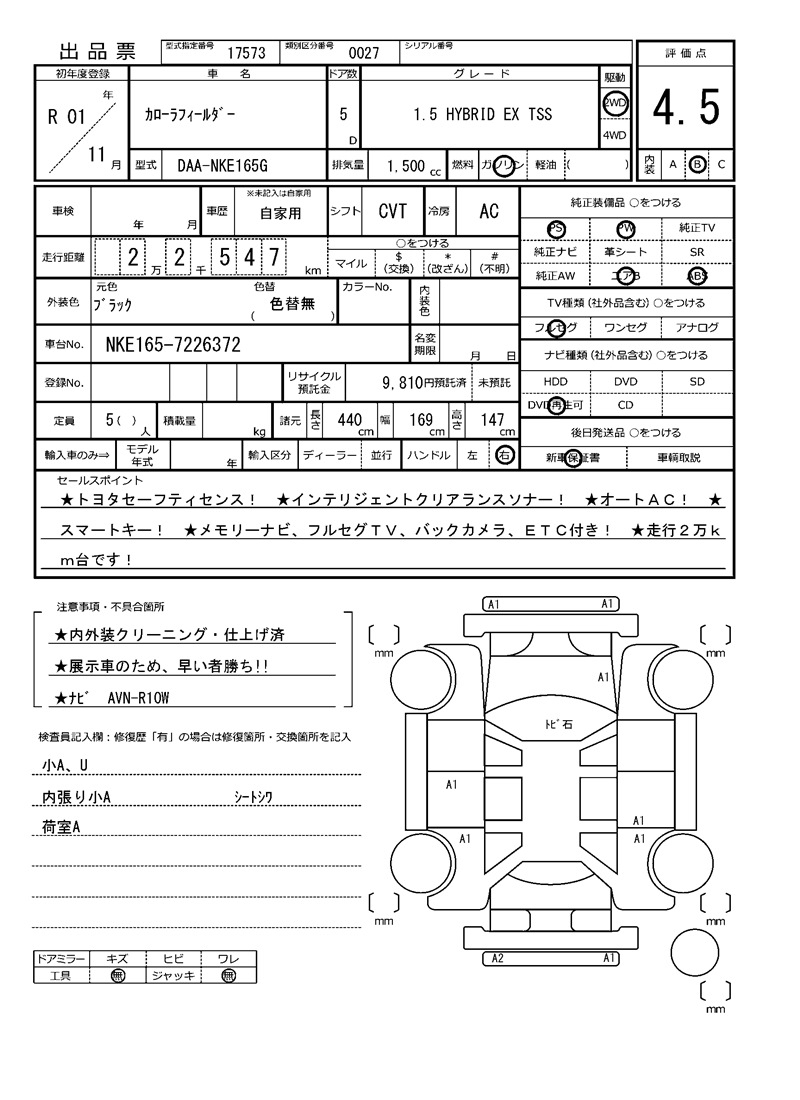 出品票 型式指定番号 17573 類別区分番号 0027 シリアル番号
評価点
4.5
内装 A B C
初年度登録 車名 ドア数 グレード 駆動
R 01 年 11 月 カローラフィールダー 5 D 1.5 HYBRID EX TSS 2WD
4WD
型式 DAA-NKE165G 排気量 1,500 cc 燃料 ガソリン 軽油 ( )
車検 年 月 車歴 ※未記入は自家用 自家用 シフト CVT 冷房 AC
走行距離 2 万 2 千 5 4 7 km ○をつける
マイル $ (交換) * (改ざん) # (不明)
外装色 元色 ブラック 色替 ( 色替無 ) カラーNo. 内装色
車台No. NKE165-7226372 名変期限 月 日
登録No. リサイクル預託金 9,810円預託済 未預託
定員 5( ) 人 積載量 kg 諸元 長さ 440 cm 幅 169 cm 高さ 147 cm
輸入車のみ⇒ モデル年式 年 輸入区分 ディーラー 並行 ハンドル 左 右
純正装備品 ○をつける
PS PW 純正TV
純正ナビ 革シート SR
純正AW エアB ABS
TV種類(社外品含む)○をつける
フルセグ ワンセグ アナログ
ナビ種類(社外品含む)○をつける
HDD DVD SD
DVD再生可 CD
後日発送品 ○をつける
新車保証書 車輌取説
セールスポイント
★トヨタセーフティセンス! ★インテリジェントクリアランスソナー! ★オートAC! ★
スマートキー! ★メモリーナビ、フルセグTV、バックカメラ、ETC付き! ★走行2万k
m台です!
注意事項・不具合箇所
★内外装クリーニング・仕上げ済
★展示車のため、早い者勝ち!!
★ナビ AVN-R10W
検査員記入欄:修復歴「有」の場合は修復箇所・交換箇所を記入
小A、U
内張り小A シートシワ
荷室A
ドアミラー キズ ヒビ ワレ
工具 無 ジャッキ 無
A1 A1
mm mm
A1
トビ石
A1
A1
A1 A1
mm mm
A2 A1
mm